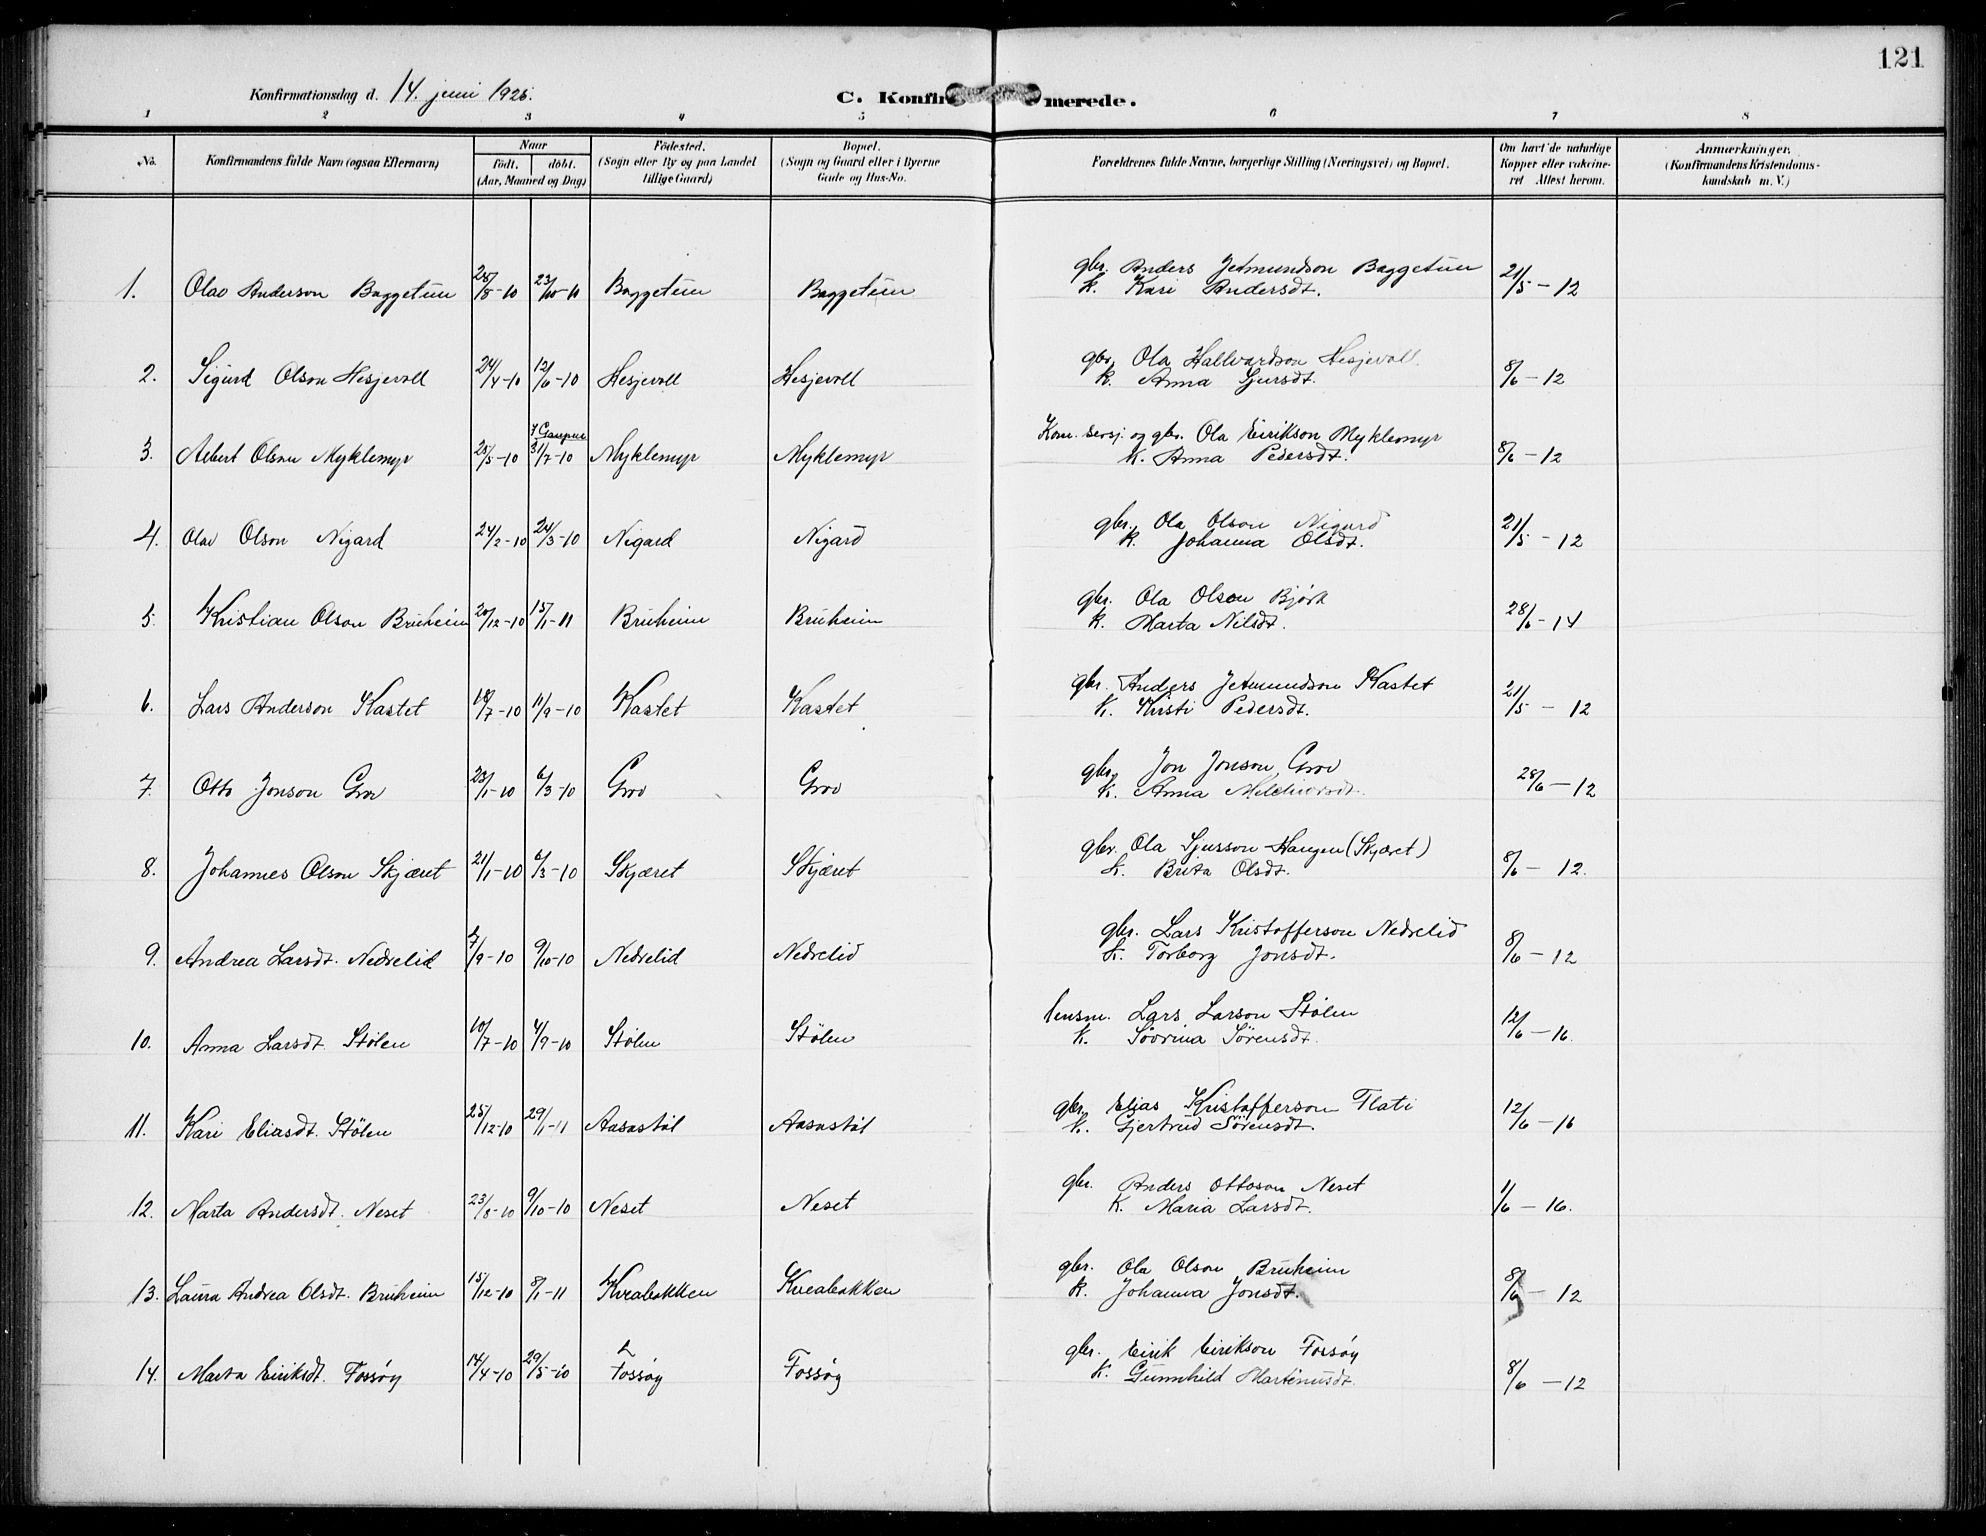 121
Konfirmationsdag d. 14. juni 1925.
C. Konfir merede.
1 2 3 4 5 6 7 8
No. Konfirmandens fulde Navn (ogsaa Efternavn) Naar födt. döbt. (Aar, Maaned og Dag) Födested. (Sogn eller By og paa Landet tillige Gaard) Bopæl. (Sogn og Gaard eller i Byerne Gade og Hus-No. Forældrenes fulde Navne, borgerlige Stilling (Næringsvei) og Bopæl. Om havt de naturlige Kopper eller vakcineret Attest herom. Anmærkninger. (Konfirmandens Kristendomskundskab m. V.)
gbr. Anders Jetmundson Baggetun
1. Olav Anderson Baggetun 28/8-10 23/10-10 Baggetun Baggetun k. Kari Andersdt. 21/5-12
gbr. Ola Hallvardson Hesjevoll
2. Sigurd Olson Hesjevoll 24/4-10 12/6-10 Hesjevoll Hesjevoll k. Anna Sjursdt. 8/6-12
i Gaupne
Kom. og gbr. Ola Eirikson Myklemyr
3. Albert Olson Myklemyr 25/5-10 31/7-10 Myklemyr Myklemyr K. Anna Pedersdt. 8/6-12
gbr. Ola Olson Nigard
4. Olav Olson Nigard 24/2-10 24/3-10 Nigard Nigard k. Johanna Olsdt. 21/5-12
gbr. Ola Olson Bjørk
5. Kristian Olson Bruheim 20/12-10 15/1-11 Bruheim Bruheim k. Marta Nilsdt. 28/6-14
gbr. Anders Jetmundson Kastet
6. Lars Anderson Kastet 18/7-10 11/9-10 Kastet Kastet K. Kristi Pedersdt. 21/5-12
gbr. Jon Jonson Grov
7. Otto Jonson Grov 23/1-10 6/3-10 Grov Grov K. Anna Melchiorsdt. 28/6-12
gbr. Ola Sjursson Haugen (Skjæret)
8. Johannes Olson Skjæret 21/1-10 6/3-10 Skjæret Skjæret k. Brita Olsdt. 8/6-12.
gbr. Lars Kristofferson Nedrelid
9. Andrea Larsdt. Nedrelid 7/9-10 9/10-10 Nedrelid Nedrelid k. Torborg Jonsdt. 8/6-12
lensm. Lars Larson Stølen
10. Anna Larsdt. Stølen 10/7-10 4/9-10 Stølen Stølen K. Søvrina Sørensdt. 12/6-16.
gbr. Elias Kristofferson Flati
11. Kari Eliasdt. Stølen 25/12-10 29/1-11 Aasastøl Aasastøl k. Gjertrud Sørensdt. 12/6-16
gbr. Anders Ottoson Neset
12. Marta Andersdt. Neset 23/8-10 9/10-10 Neset Neset K. Maria Larsdt. 1/6-16.
gbr. Ola Olson Bruheim
13. Laura Andrea Olsdt. Bruheim 15/12-10 8/1-11 Kveabakken Kveabakken k. Johanna Jonsdt. 8/6-12
gbr. Eirik Eirikson Fossøy
14. Marta Eiriksdt. Fossøy 14/4-10 29/5-10 Fossøy Fossøy K. Gunnhild Martinusdt. 8/6-12